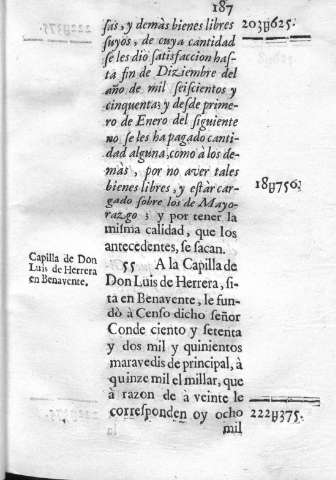 187
sas, y demàs bienes libres 203ɥ625.
suyos, de cuya cantidad
se les diò satisfaccion has-
ta fin de Diziembre del
año de mil seiscientos y
cinquenta; y desde prime-
ro de Enero del siguiente
no se les ha pagado canti-
dad alguna, como à los de-
màs, por no aver tales
bienes libres, y estàr car- 18ɥ756.
gado sobre los de Mayo-
razgo; y por tener la
misma calidad, que los
antecedentes, se sacan.
Capilla de Don
Luis de Herrera
en Benavente.
55 A la Capilla de
Don Luis de Herrera, si-
ta en Benavente, le fun-
dò à Censo dicho señor
Conde ciento y setenta
y dos mil y quinientos
maravedis de principal, à
quinze mil el millar, que
à razon de à veinte le
corresponden oy ocho 222ɥ375.
mil